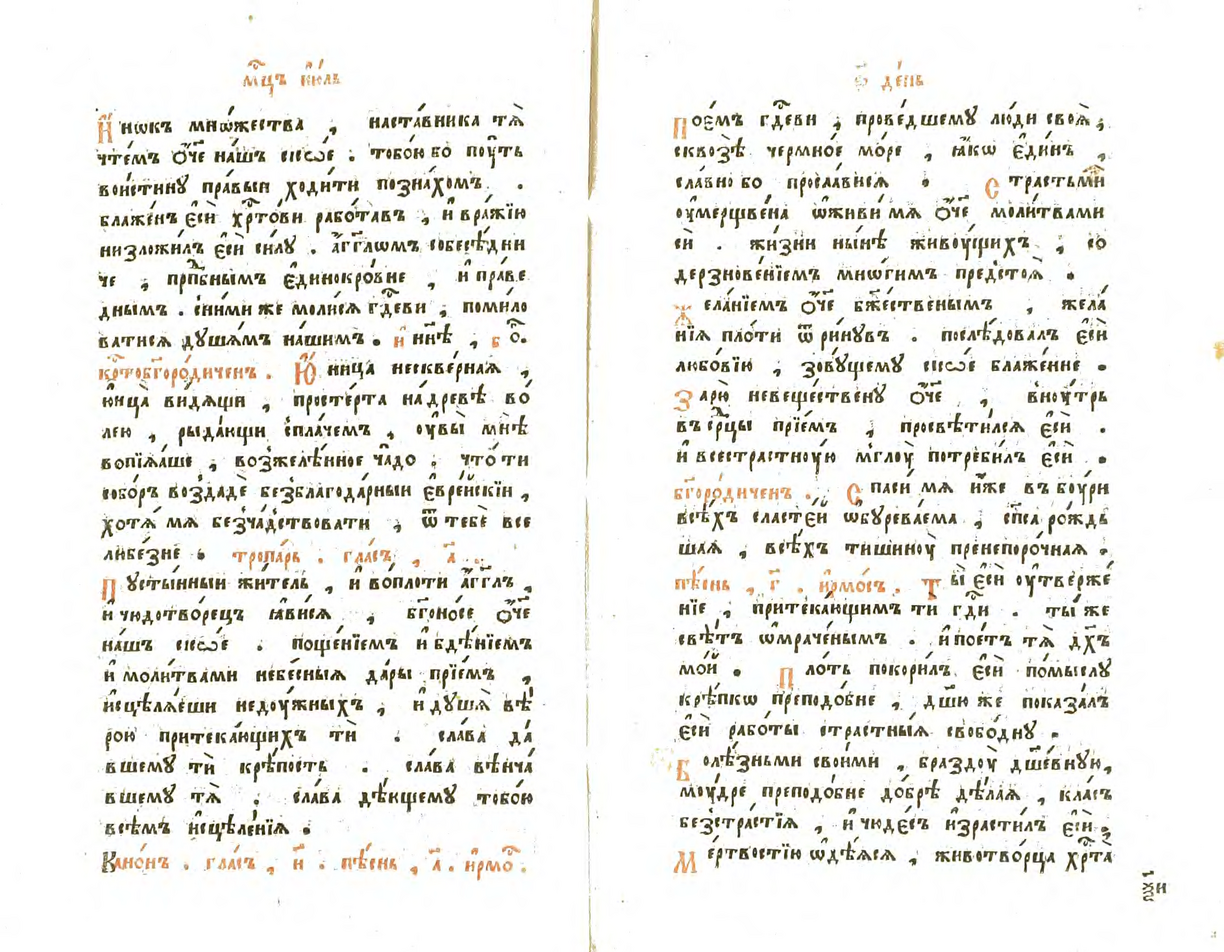 мⷭ҇цъ ію́ль
И҆́нокъ мно́жества , наста́вника тѧ̀
чте́мъ ѻ҆́ч҃е на́шъ сисѡ́е . тобо́ю бо пꙋ́ть
вои́стинꙋ пра́выи ходи́ти позна́хомъ .
блаже́нъ є҆сѝ хрⷭ҇то́ви рабо́тавъ , и҆ вра́жїю
низложи́лъ є҆сѝ си́лꙋ . а҆́гг҃лѡмъ собесѣ́дни
че , прпⷣбнымъ є҆динокро́вне , и҆ пра́ве
днымъ . сни́ми же моли́сѧ гдⷭ҇еви , поми́ло
ватисѧ дꙋша́мъ на́шимъ . и҆ нн҃ѣ , б о҃ .
крⷭ҇тобг҃оро́диченъ . Ю҆́ница нескве́рнаѧ ,
ю҆́нца ви́дѧщи , просте́рта на дре́вѣ во́
лею , рыда́ющи спла́чемъ , оу҆вы̀ мнѣ̀
вопїѧ́ше , возжелѣ́нное ча́до . что́ ти
собо́ръ воздадѐ безблагода́рныи є҆вре́йскїи ,
хотѧ́ мѧ безча́дствовати , ѿ тебѐ все
любе́зне . тропа́рь . гла́съ , а҃ .
Пꙋсты́нныи жи́тель , и҆ во́плоти а҆́гг҃лъ ,
и҆ чюдотво́рецъ ꙗ҆ви́сѧ , бг҃оно́се ѻ҆́ч҃е
на́шъ сисѡ́е . поще́нїемъ и҆ бдѣ́нїемъ
и҆ моли́твами небе́сныѧ да́ры прїе́мъ ,
и҆сцѣлѧ́еши недоу́жныхъ , и҆ дꙋшѧ̀ вѣ́
рою притека́ющихъ ти . сла́ва да́
вшемꙋ тѝ крѣ́пость . сла́ва вѣнча́
вшемꙋ тѧ̀ . сла́ва дѣ́ющемꙋ тобо́ю
всѣ́мъ и҆сцѣле́нїѧ .
Кано́нъ . гла́съ , и҃ . пѣ́снь , а҃ . і҆рмоⷭ҇ .
ѕ҃ де́нь
Пое́мъ гдⷭ҇еви , прове́дшемꙋ лю́ди своѧ̀ ,
сквозѣ̀ чермно́е мо́ре , ꙗ҆́кѡ є҆ди́нъ ,
сла́вно бо просла́висѧ . Страстьмѝ
оу҆мерщве́на ѡ҆живи́ мѧ ѻ҆́ч҃е моли́твами
си . жи́зни ны́нѣ живоу́щихъ , со
дерзнове́нїемъ мно́гимъ предстоѧ̀ .
Жела́нїемъ ѻ҆́ч҃е бжⷭ҇е́ственымъ , жела́
нїѧ пло́ти ѿри́нꙋвъ . послѣ́довалъ є҆сѝ
любо́вїю , зовꙋ́щемꙋ сисѡ́е блаже́нне .
Зарю̀ невеще́ственꙋ ѻ҆́ч҃е , вноу́трь
въ срⷣцы прїе́мъ , просвѣти́лсѧ є҆сѝ .
и҆ всестра́стноую мглоу̀ потреби́лъ є҆сѝ .
бг҃оро́диченъ . Спаси́ мѧ и҆́же въ боу́ри
всѣ́хъ сласте́й ѡ҆бꙋрева́ема , сп҃са ро́ждь
шаѧ , всѣ́хъ тишиноу̀ пренепоро́чнаѧ .
пѣ́снь , г҃ . і҆рмо́съ . Ты̀ є҆сѝ оу҆твержє́
нїе , притека́ющимъ ти гдⷭ҇и . ты́ же
свѣ́тъ ѡ҆мраче́нымъ . и҆ пое́тъ тѧ̀ дх҃ъ
мо́й . Пло́ть покори́лъ є҆сѝ по́мыслꙋ
крѣ́пкѡ преподо́бне , дш҃ю же показа́лъ
є҆сѝ рабо́ты стра́стныѧ свобо́днꙋ .
Болѣ́зньми свои́ми , браздоу̀ дш҃е́внꙋю ,
моу́дре преподо́бне до́брѣ дѣ́лаѧ , кла́съ
безстра́стїѧ , и҆ чюде́съ и҆зрасти́лъ є҆сѝ .
Ме́ртвостїю ѡ҆дѣ́ѧсѧ , животво́рца хрⷭ҇та̀